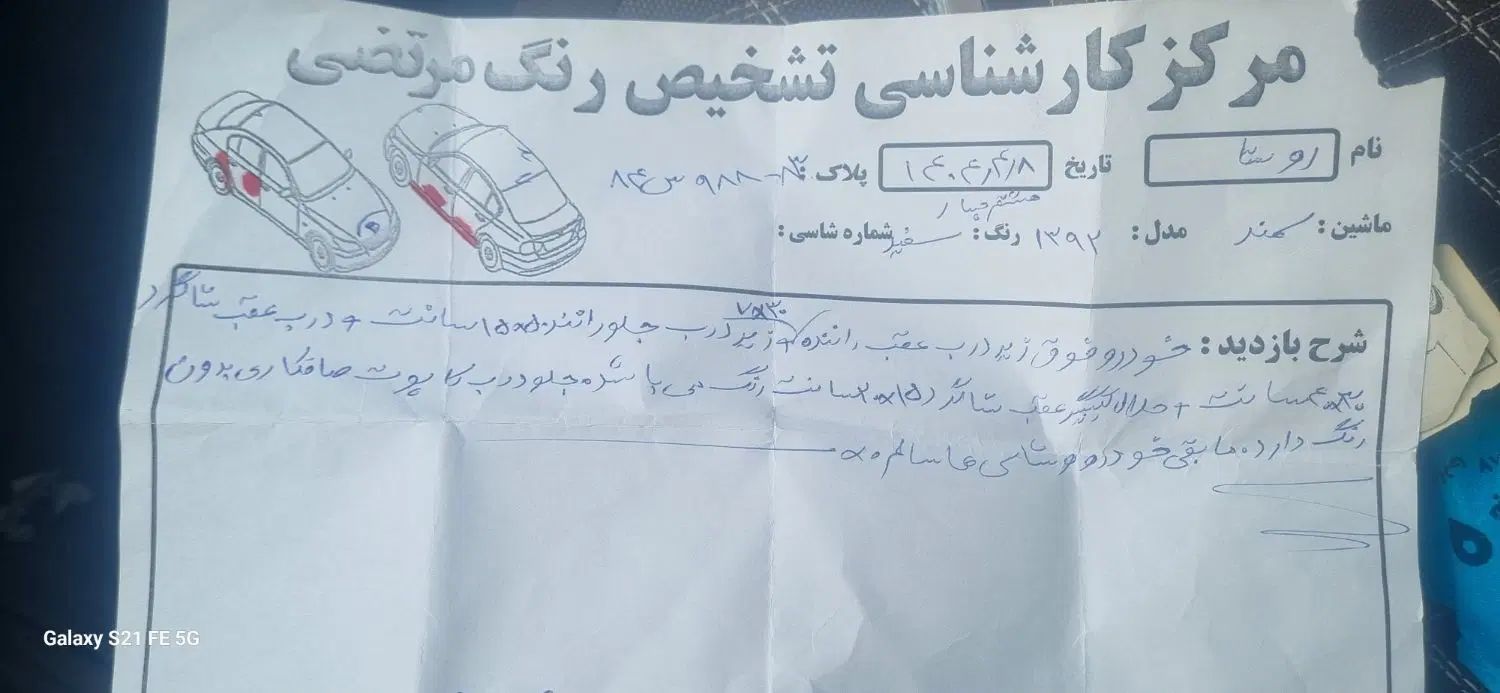 مرکز کارشناسی تشخیص رنگ مرتضی
نام روستا تاریخ ۱۴۰۴٫۴٫۸ پلاک ۹۸۸ س ۸۴
هشتم چهار
ماشین : سمند مدل : ۱۳۹۲ رنگ : سفید شماره شاسی :
۷×۳۰
شرح بازدید : خودرو فوق زیر درب عقب راننده و زیر درب جلو راننده ۱۵×۵۰ سانت + درب عقب شاگرد
۴۰×۳۰ سانت + گلگیر عقب شاگرد ۲۰×۱۵ سانت رنگ می باشد جلو درب کاپوت صافکاری بدون
رنگ دارد. مابقی خودرو و شاسی ها سالم
Galaxy S21 FE 5G